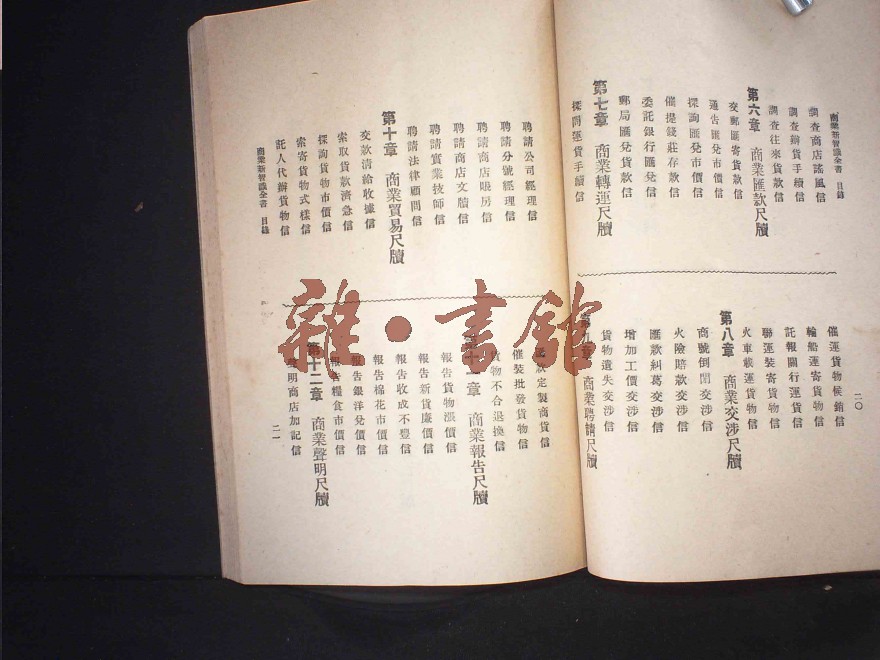 商業新智識全書 目錄
調查商店謠風信
調查辦貨手續信
調查往來貨款信
第六章 商業匯款尺牘
交郵匯寄貨款信
通告匯兌市價信
探詢匯兌市價信
催提錢莊存款信
委託銀行匯兌信
郵局匯兌貨款信
第七章 商業轉運尺牘
探問運貨手續信
催運貨物候銷信
輪船運寄貨物信
託報關行運貨信
聯運裝寄貨物信
火車載運貨物信
第八章 商業交涉尺牘
商號倒閉交涉信
火險賠款交涉信
匯款糾葛交涉信
增加工價交涉信
貨物遺失交涉信
第九章 商業聘請尺牘
二〇
聘請公司經理信
聘請分號經理信
聘請商店賬房信
聘請商店文牘信
聘請實業技師信
聘請法律顧問信
第十章 商業貿易尺牘
交款請給收據信
索取貨款濟急信
探詢貨物市價信
索寄貨物式樣信
託人代辦貨物信
商業新智識全書 目錄
款定製商貨信
催裝批發貨物信
貨物不合退換信
第十一章 商業報告尺牘
報告貨物漲價信
報告新貨廉價信
報告收成不豐信
報告棉花市價信
報告銀洋兌價信
報告糧食市價信
第十二章 商業聲明尺牘
聲明商店加記信
二一
雜·書館